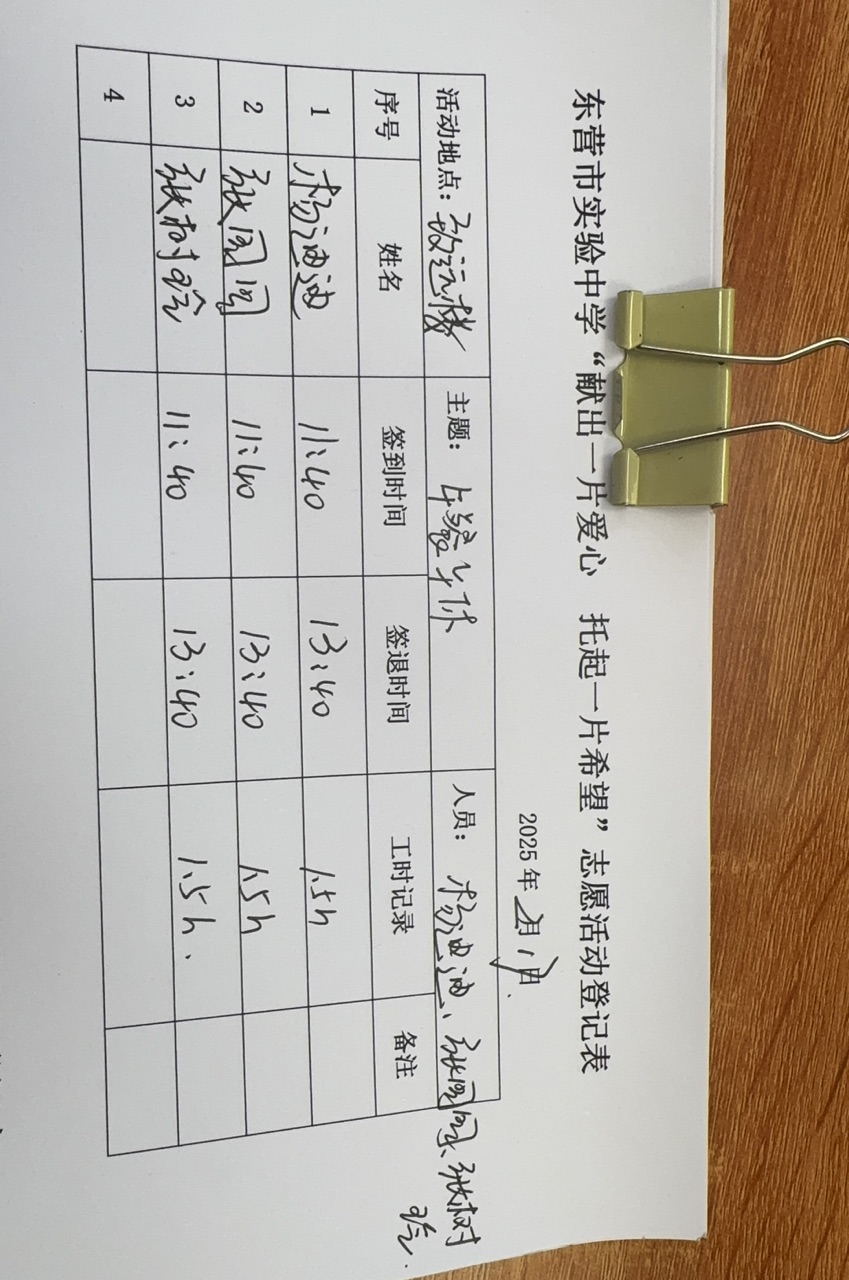 东营市实验中学“献出一片爱心 托起一片希望”志愿活动登记表
2025年 月 日
活动地点：致远楼 主题：午餐午休 人员：杨迪迪、张圆圆、张树
序号 姓名 签到时间 签退时间 工时记录 备注
1 杨迪迪 11:40 13:40 1.5h
2 张圆圆 11:40 13:40 1.5h
3 张树 11:40 13:40 1.5h.
4